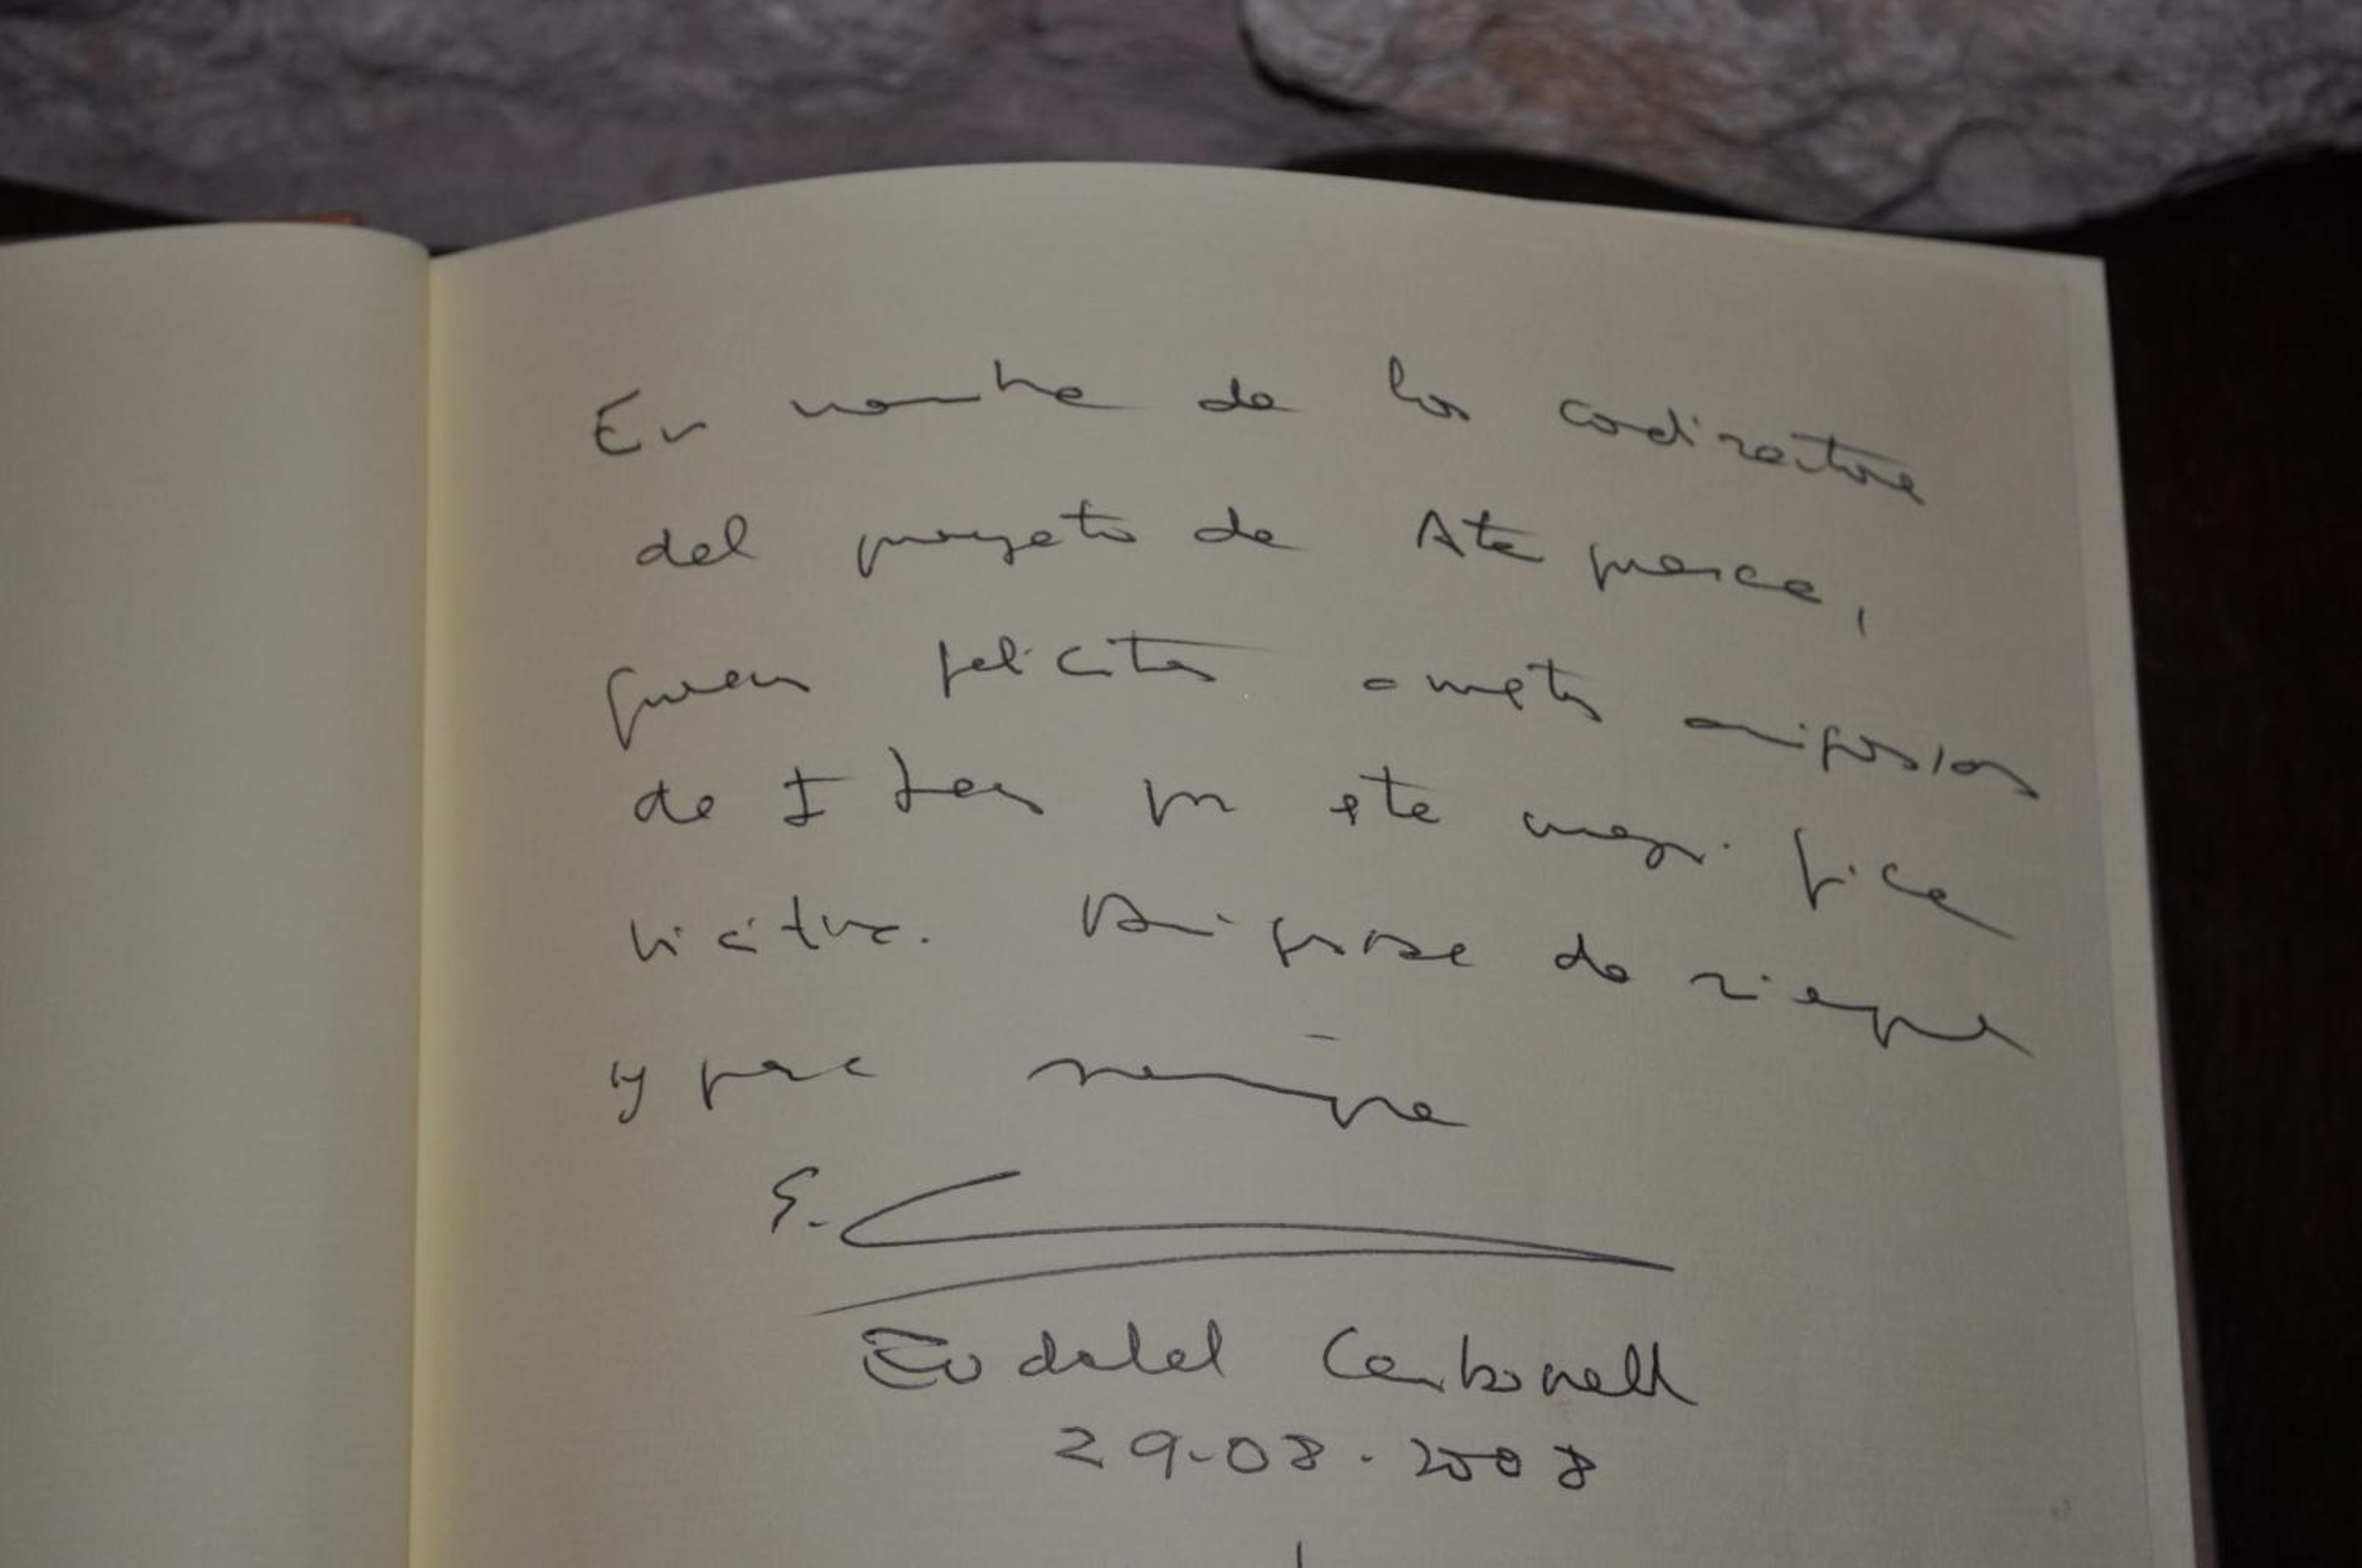 En nombre de los codirectores
del proyecto de Atapuerca,
quiero felicitar a nuestros amigos
de por esta magnífica
iniciativa. de siempre
y para siempre
E. C
Eudald Carbonell
29-08-2008